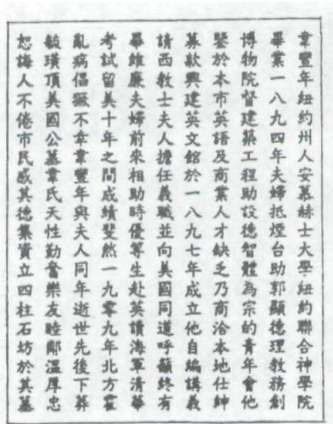 韋豐年紐約州人安慕赫士大學紐約聯合神學院
畢業一八九四年夫婦抵煙台助郭顯德理教務創
博物院督建築工程助設德智體為宗的青年會他
鑒於本市英語及商業人才缺乏乃商洽本地仕紳
募款興建英文館於一八九七年成立他自編講義
請西教士夫人擔任義職並向美國同道呼籲終有
畢維廉夫婦前來相助時優等生赴英讀海軍清華
考試留美十年之間成績斐然一九零九年北方霍
亂病倡獗不幸韋豐年與夫人同年逝世先後下葬
毓璜頂美國公墓韋氏天性勤奮樂友睦鄰溫厚忠
恕誨人不倦市民感其德集資立四柱石坊於其墓